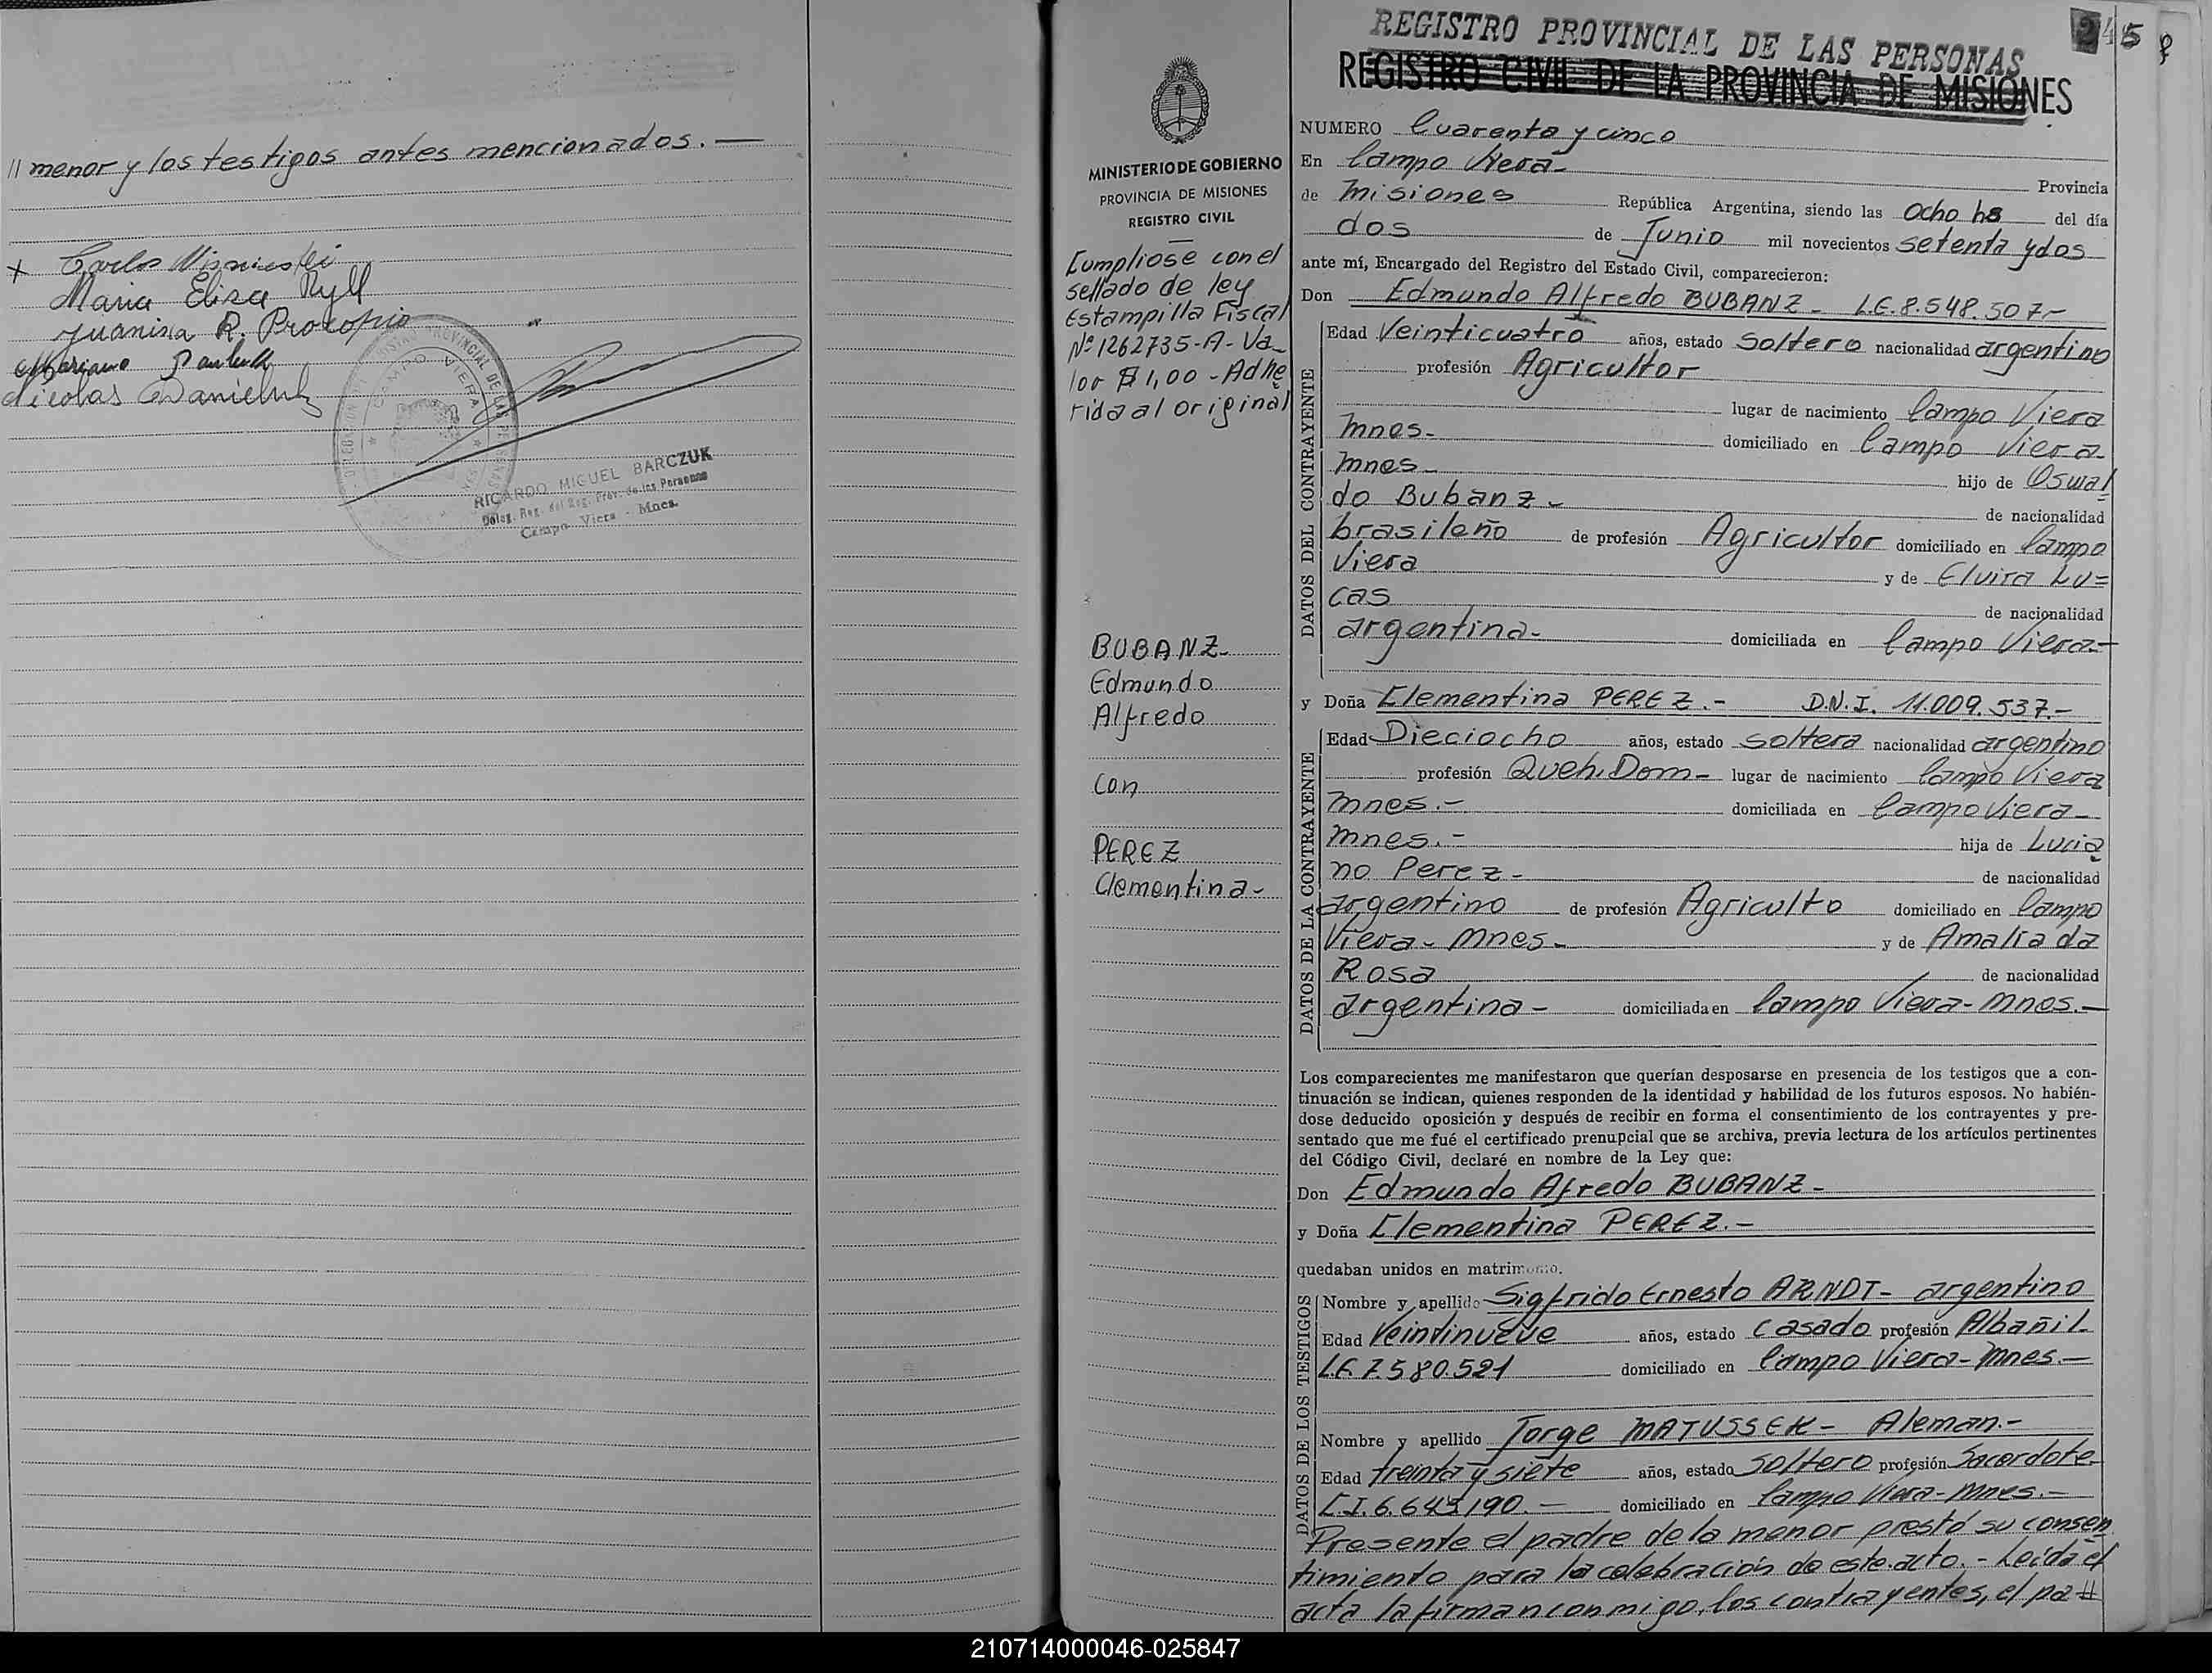 // menor y los testigos antes mencionados. —
+ Carlos
Maria Eliza Ryll
Juanina R. Procopio
Mariano
Nicolas
CAMPO VIERA
RICARDO MIGUEL BARCZUK
Deleg. Reg. del Reg. Prov. de las Personas
Campo Viera - Mnes.
REGISTRO PROVINCIAL DE LAS PERSONAS
REGISTRO CIVIL DE LA PROVINCIA DE MISIONES
245
MINISTERIO DE GOBIERNO
PROVINCIA DE MISIONES
REGISTRO CIVIL
Cumpliose con el
sellado de ley
Estampilla Fiscal
Nº 1262735-A- Va_
lor $ 1,00 - Adhe
rida al original
BUBANZ-
Edmundo
Alfredo
Con
PEREZ
Clementina-
NUMERO Cuarenta y cinco
En Campo Viera- Provincia
de Misiones República Argentina, siendo las Ocho hs del día
dos de Junio mil novecientos setenta y dos
ante mí, Encargado del Registro del Estado Civil, comparecieron:
Don Edmundo Alfredo BUBANZ- L.E. 8.548.507-
DATOS DEL CONTRAYENTE
Edad Veinticuatro años, estado Soltero nacionalidad argentino
profesión Agricultor
lugar de nacimiento Campo Viera
Mnes- domiciliado en Campo Viera
Mnes- hijo de Oswal
do Bubanz- de nacionalidad
brasileño de profesión Agricultor domiciliado en Campo
Viera y de Elvira Lu=
cas de nacionalidad
argentina- domiciliada en Campo Viera.-
y Doña Clementina PEREZ.- D.N.I. 11.009.537.-
DATOS DE LA CONTRAYENTE
Edad Dieciocho años, estado soltera nacionalidad argentino
profesión Queh. Dom- lugar de nacimiento Campo Viera
Mnes.- domiciliada en Campo Viera-
Mnes.- hija de Lucia
no Perez- de nacionalidad
argentino de profesión Agriculto domiciliado en Campo
Viera- Mnes- y de Amalia da
Rosa de nacionalidad
argentina- domiciliada en Campo Viera-Mnes.-
Los comparecientes me manifestaron que querían desposarse en presencia de los testigos que a con-
tinuación se indican, quienes responden de la identidad y habilidad de los futuros esposos. No habién-
dose deducido oposición y después de recibir en forma el consentimiento de los contrayentes y pre-
sentado que me fué el certificado prenupcial que se archiva, previa lectura de los artículos pertinentes
del Código Civil, declaré en nombre de la Ley que:
Don Edmundo Afredo BUBANZ-
y Doña Clementina PEREZ.-
quedaban unidos en matrimonio.
DATOS DE LOS TESTIGOS
Nombre y apellido Sigfrido Ernesto ARNDT- argentino
Edad Veintinueve años, estado casado profesión Albañil-
L.E. 7.580.521 domiciliado en Campo Viera-Mnes.-
Nombre y apellido Jorge MATUSSEK- Aleman.-
Edad treinta y siete años, estado soltero profesión Sacerdote
C.I. 6.643.190.- domiciliado en Campo Viera-Mnes.-
Presente el padre de la menor prestó su consen
timiento para la celebración de este acto.- Leída el
acta la firman conmigo, los contrayentes, el pa //
210714000046-025847